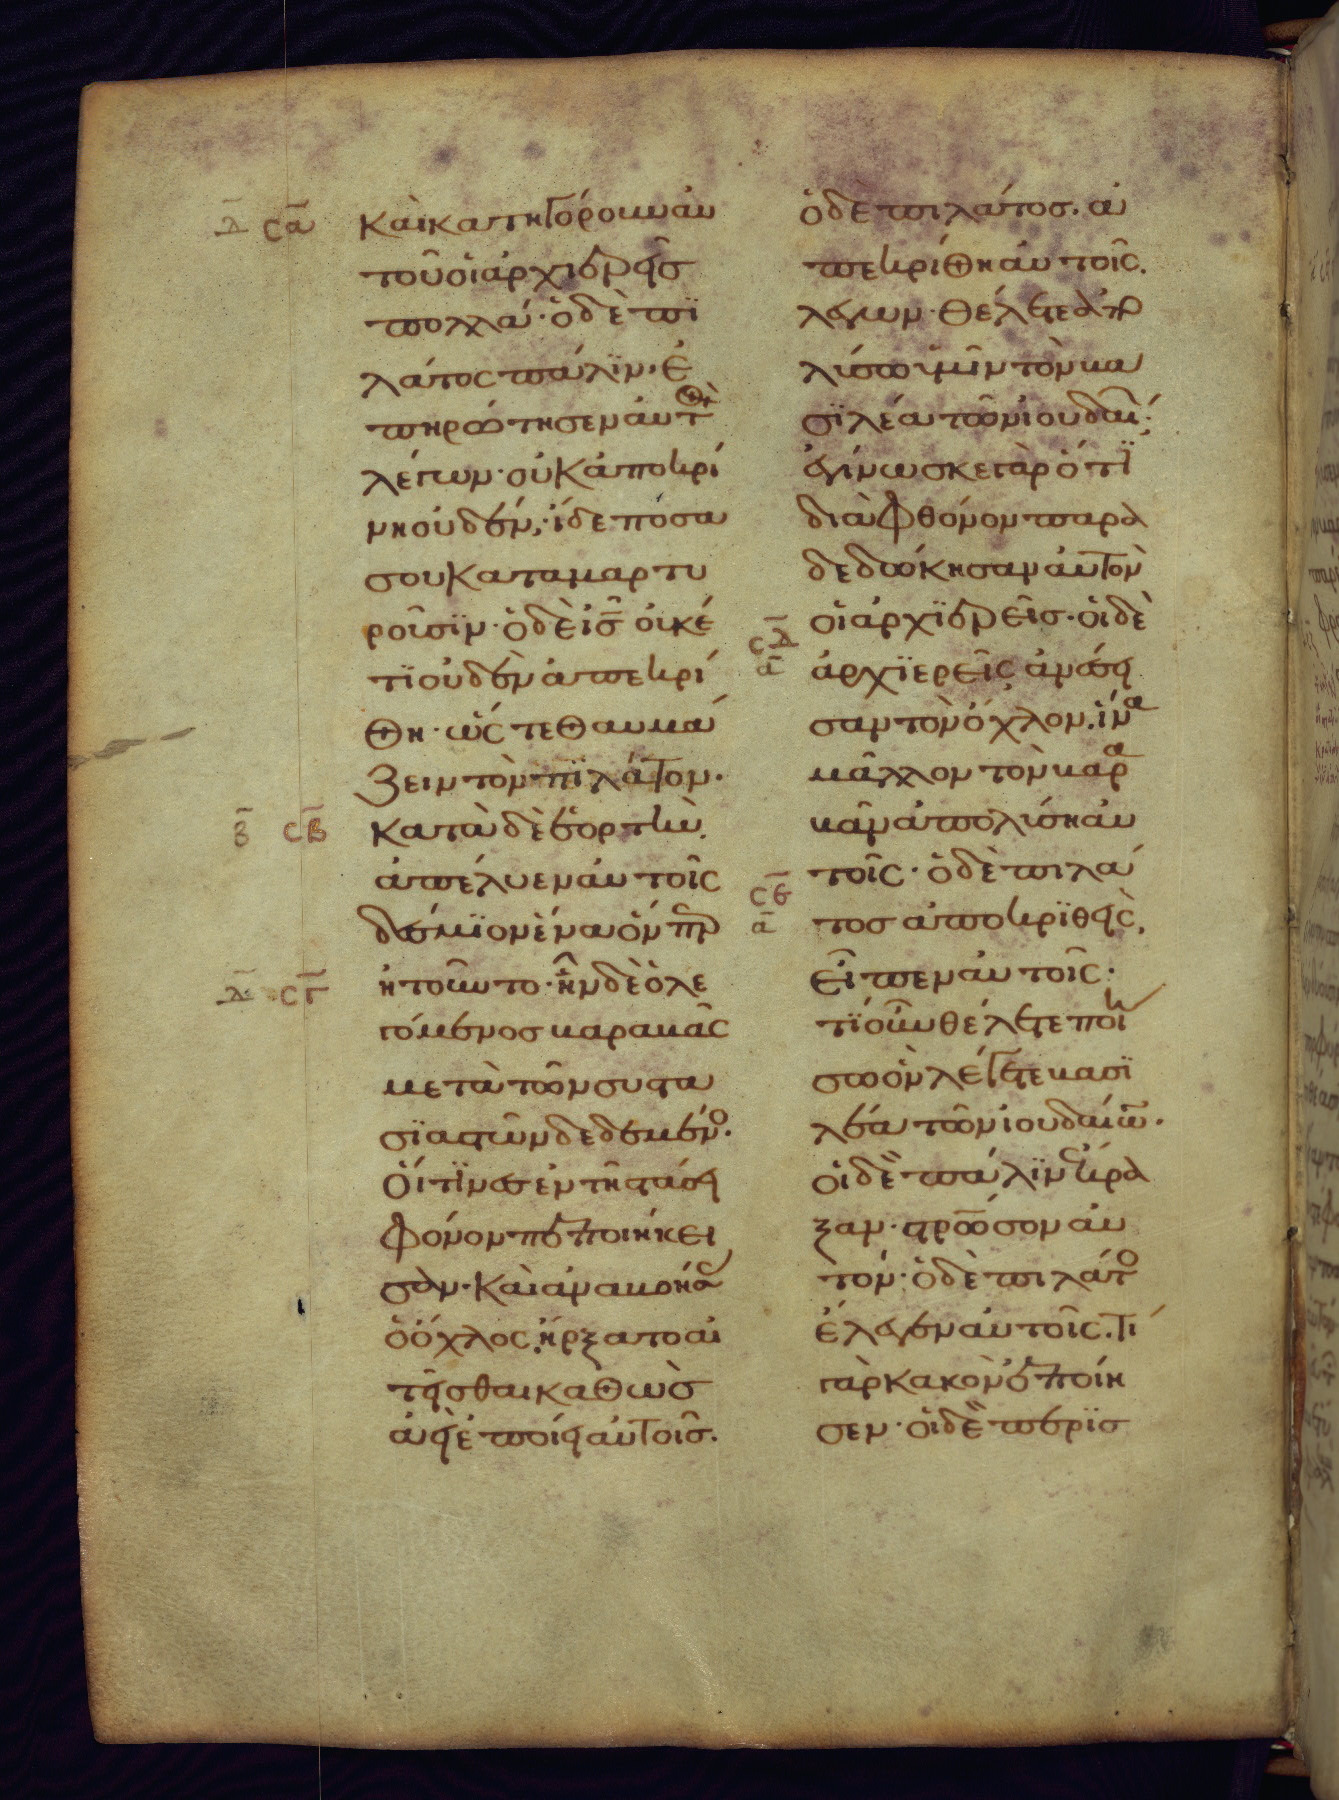 δ σα
καὶ κατηγόρουν αὐ
τοῦ οἱ ἀρχιερεῖς
πολλά· ὁ δὲ πϊ
λάτος πάλϊν· ἐ
πηρώτησεν αὐτὸν
λέγων· οὐκ ἀποκρί
νη οὐδέν; ἴδε πόσα
σου καταμαρτυ
ροῦσϊν· ὁ δὲ ις οὐκέ
τϊ οὐδὲν ἀπεκρί
θη· ὥς τε θαυμά
ζειν τὸν πϊλάτον·
β σβ
κατὰ δὲ ἑορτὴν
ἀπέλυεν αὐτοῖς
δέσμϊον ἕνα ὃν περ
δ σγ
ἠτοῦντο· ἦν δὲ ὁ λε
γόμενος βαραββᾶς
μετὰ τῶν συστα
σϊαστῶν δεδεμένο·
οἵτϊνες ἐν τῇ στάσει
φόνον πεποιήκει
σὰν· καὶ ἀναβοήσας
ὁ ὄχλος ἤρξατο αἰ
τεῖσθαι καθὼς
ἀεὶ ἐποίει αὐτοῖς·
ὁ δὲ πιλάτος· ἀ
πεκρίθη αὐτοῖς
λέγων· θέλετε ἀπο
λύσω ὑμῖν τὸν βα
σϊλέα τῶν ἰουδαί;
ἐγίνωσκε γὰρ ὅτϊ
διὰ φθόνον παρα
δεδώκησαν αὐτὸν
οἱ ἀρχϊερεῖς· οἱ δὲ
σδ
α
ἀρχϊερεῖς ἀνέσει
σαν τὸν ὄχλον· ἵνα
μᾶλλον τὸν βαρα
βᾶν ἀπολύση αὐ
τοῖς· ὁ δὲ πιλά
σε
α
τος ἀποκρϊθεὶς
εἶπεν αὐτοῖς·
τϊ οὖν θέλετε ποιη
σω ὃν λέγετε βασϊ
λέα τῶν ἰουδαίω·
οἱ δὲ πάλϊν ἔκρα
ξαν· στρωσον αὐ
τόν· ὁ δὲ πιλάτο
ἔλεγεν αὐτοῖς· τί
γὰρ κακὸν ἐποίη
σεν· οἱ δὲ περϊς